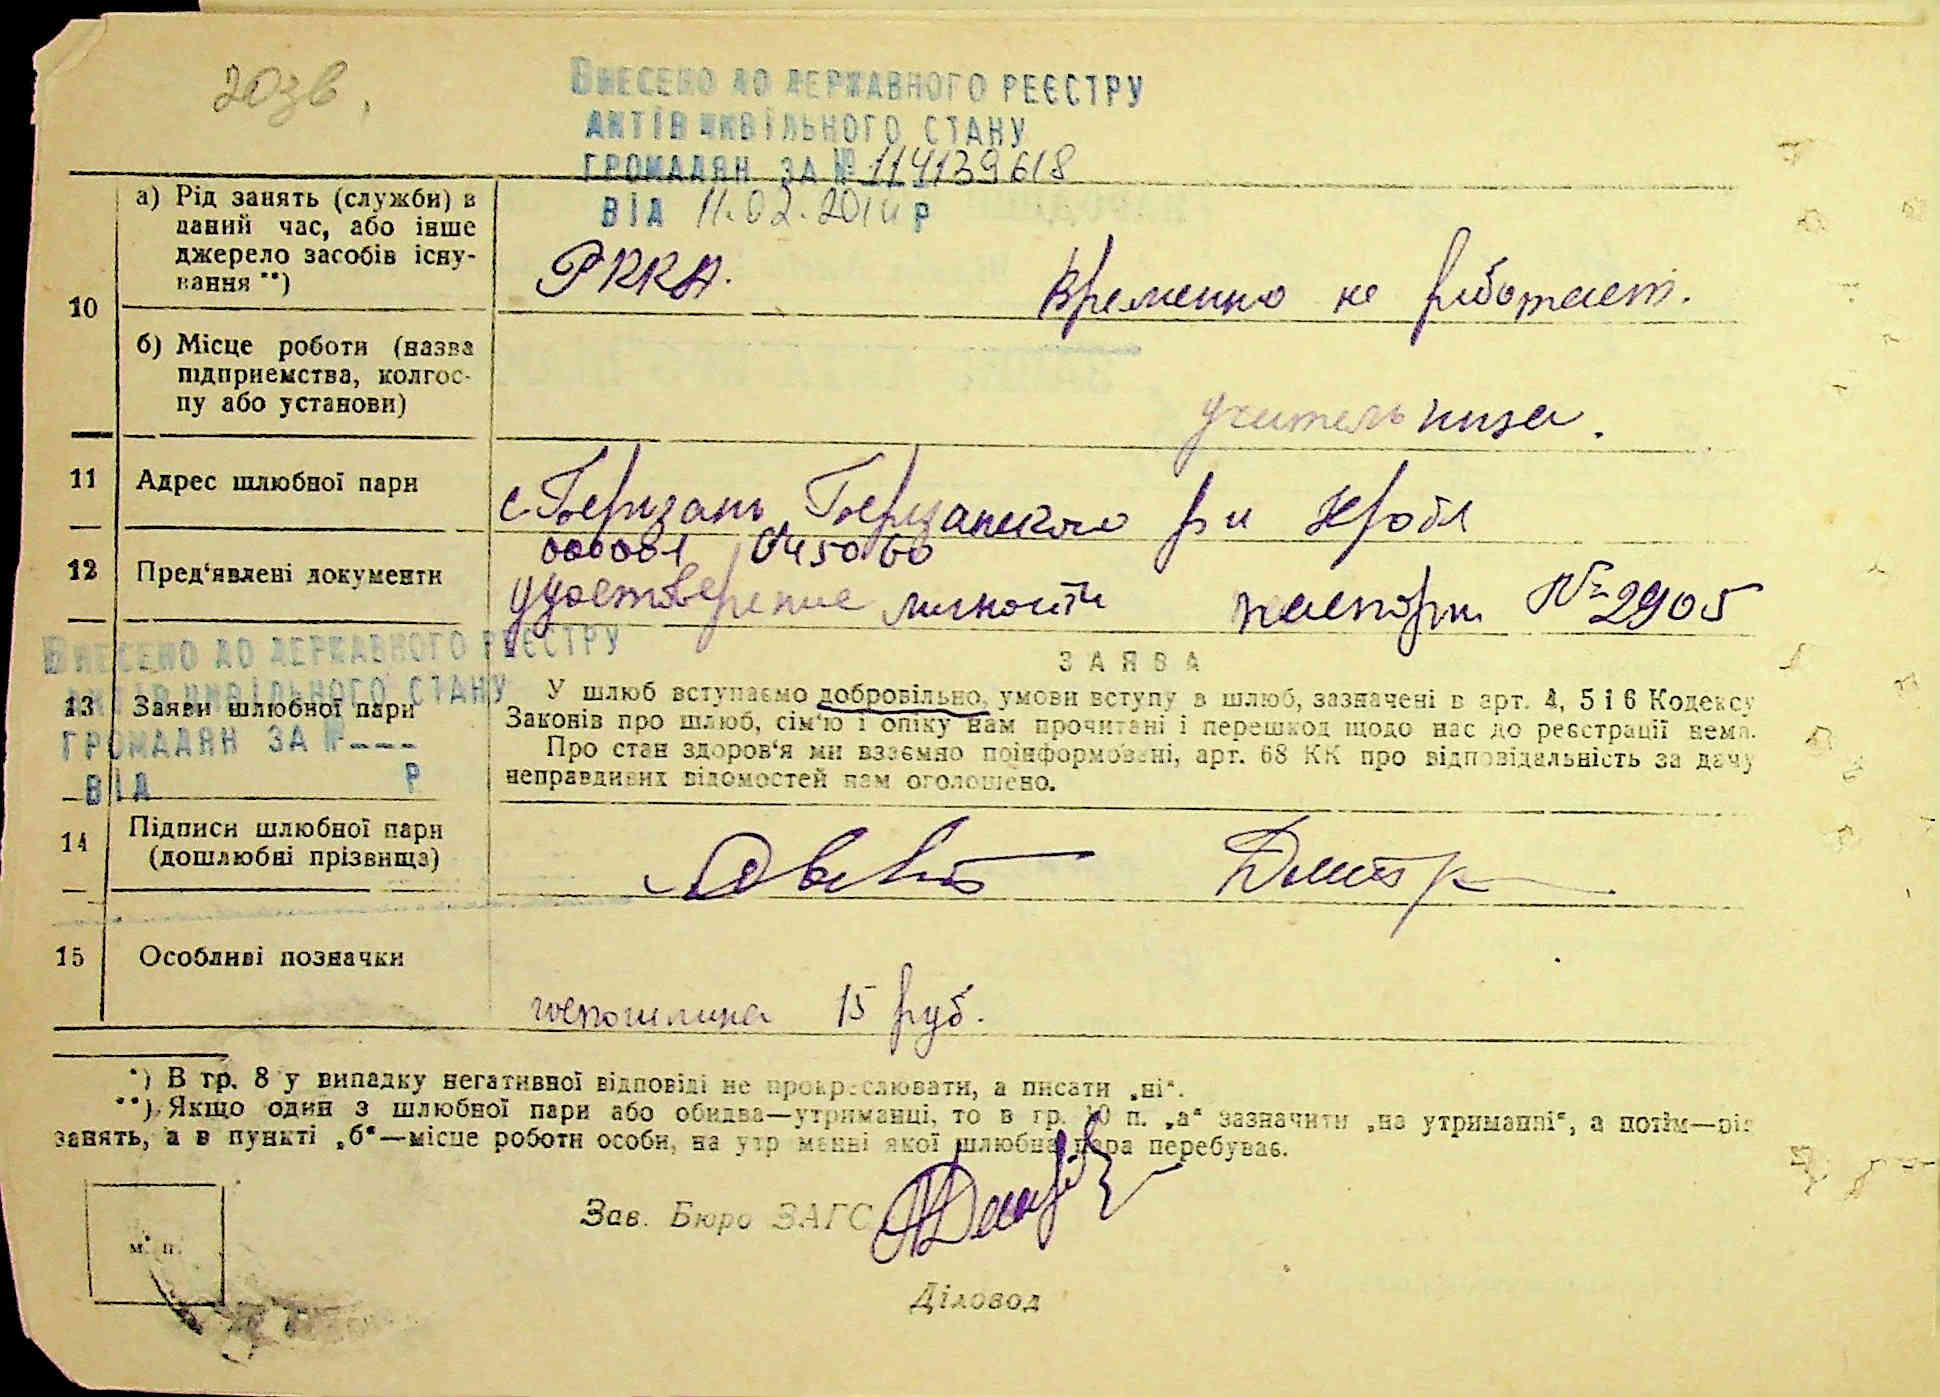 ВНЕСЕНО ДО ДЕРЖАВНОГО РЕЄСТРУ
АКТІВ ЦИВІЛЬНОГО СТАНУ
ГРОМАДЯН ЗА № 114139618
ВІД 11.02.2014 Р
10
а) Рід занять (служби) в
даний час, або інше
джерело засобів існу-
вання **)
РККА.
Временно не работает.
б) Місце роботи (назва
підприємства, колгос-
пу або установи)
учительница.
11
Адрес шлюбної пари
с.
12
Пред'явлені документи
045060
удостверение личности паспорт № 2905
ВНЕСЕНО ДО ДЕРЖАВНОГО РЕЄСТРУ
АКТІВ ЦИВІЛЬНОГО СТАНУ
ГРОМАДЯН ЗА №
ВІД Р
13
Заяви шлюбної пари
ЗАЯВА
У шлюб вступаємо добровільно, умови вступу в шлюб, зазначені в арт. 4, 5 і 6 Кодексу
Законів про шлюб, сім'ю і опіку нам прочитані і перешкод щодо нас до реєстрації нема.
Про стан здоров'я ми взаємно поінформовані, арт. 68 КК про відповідальність за дачу
неправдивих відомостей нам оголошено.
14
Підписи шлюбної пари
(дошлюбні прізвища)
15
Особливі позначки
госпошлина 15 руб.
*) В гр. 8 у випадку негативної відповіді не прокреслювати, а писати „ні“.
**) Якщо один з шлюбної пари або обидва—утриманці, то в гр. 10 п. „а“ зазначити „на утриманні“, а потім—рід
занять, а в пункті „б“—місце роботи особи, на утр манні якої шлюбна пара перебуває.
м. п.
Зав. Бюро ЗАГС
Діловод